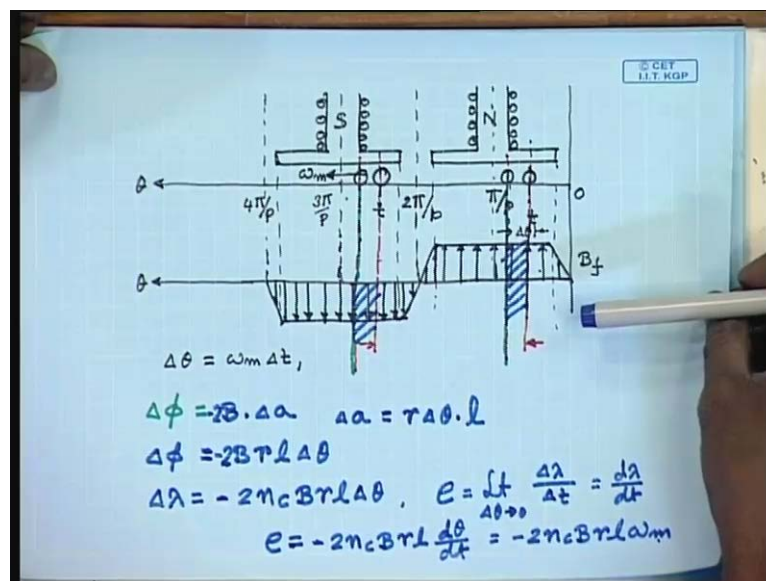 © CET
I.I.T. KGP
S N
ωm
θ 4π/p 3π/p 2π/p π/p 0
t t
Δθ
θ Bf
Δθ = ωm Δt,
Δϕ = -2B · Δa Δa = rΔθ · l
Δϕ = -2B r l Δθ
Δλ = - 2 nc B r l Δθ , e = Lt Δθ→0 Δλ/Δt = dλ/dt
e = - 2 nc B r l dθ/dt = - 2 nc B r l ωm